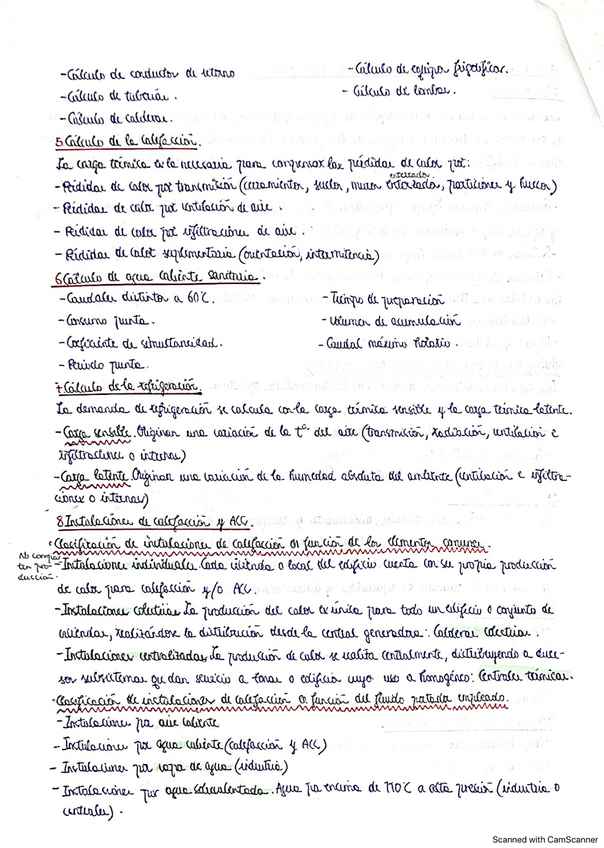 - Cálculo de conductos de retorno
- Cálculo de equipos frigoríficos.
- Cálculo de tuberías.
- Cálculo de bombas.
- Cálculo de calderas.
5 Cálculo de la calefacción.
La carga térmica es la necesaria para compensar las pérdidas de calor por:
- Pérdidas de calor por transmisión (cerramientos, suelos, muros enterrados, particiones y huecos)
- Pérdidas de calor por ventilación de aire.
- Pérdidas de calor por infiltraciones de aire.
- Pérdidas de calor suplementarias (orientación, intermitencia)
6 Cálculo de agua caliente sanitaria.
- Caudales distintos a 60°C.
- Tiempo de preparación
- Consumo punta.
- Volumen de acumulación
- Coeficiente de simultaneidad.
- Caudal máximo horario.
- Periodo punta.
7 Cálculo de la refrigeración.
La demanda de refrigeración se calcula con la carga térmica sensible y la carga térmica latente.
- Carga sensible. Originan una variación de la tª del aire (transmisión, radiación, ventilación e
infiltraciones o internas)
- Carga latente Originan una variación de la humedad absoluta del ambiente (ventilación e infiltra-
ciones o internas)
8 Instalaciones de calefacción y ACC.
· Clasificación de instalaciones de calefacción en función de los elementos comunes.
No compar-
ten pro-
ducción
- Instalaciones individuales. Cada vivienda o local del edificio cuenta con su propia producción
de calor para calefacción y/o ACC.
- Instalaciones colectivas. La producción del calor es única para todo un edificio o conjunto de
viviendas, realizándose la distribución desde la central generadora: Calderas colectivas.
- Instalaciones centralizadas. La producción de calor se realiza centralmente, distribuyendo a diver-
sos subsistemas que dan servicio a zonas o edificio cuyo uso es homogéneo: Centrales térmicas.
· Clasificación de instalaciones de calefacción en función del fluido portador empleado.
- Instalaciones por aire caliente
- Instalaciones por agua caliente (calefacción y ACC)
- Instalaciones por vapor de agua (industria)
- Instalaciones por agua sobrecalentada. Agua por encima de 110°C a alta presión (industria o
centrales).
Scanned with CamScanner